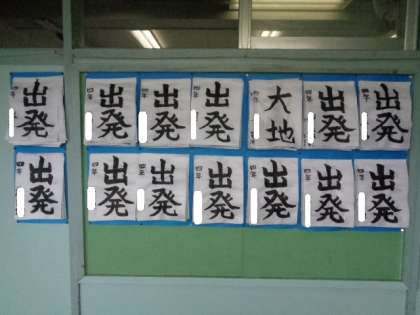 出発 四年
出発 四年
出発 四年
出発 四年
大地 四年
出発 四年
出発 四年
出発 四年
出発 四年
出発 四年
出発 四年
出発 四年
出発 四年
出発 四年